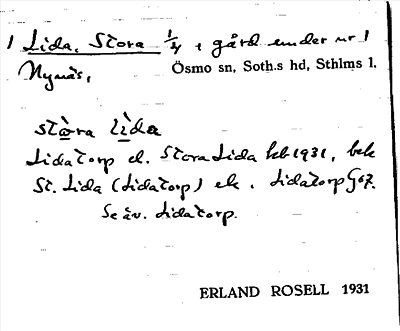 1 Lida, Stora 1/4 + gård under nr 1
Nynäs, Ösmo sn, Soth.s hd, Sthlms l.
stòra lìda
Lidatorp el. Stora Lida kb 1931, bek
St. Lida (Lidatorp) ek. Lidatorp G67.
Se äv. Lidatorp.
ERLAND ROSELL 1931